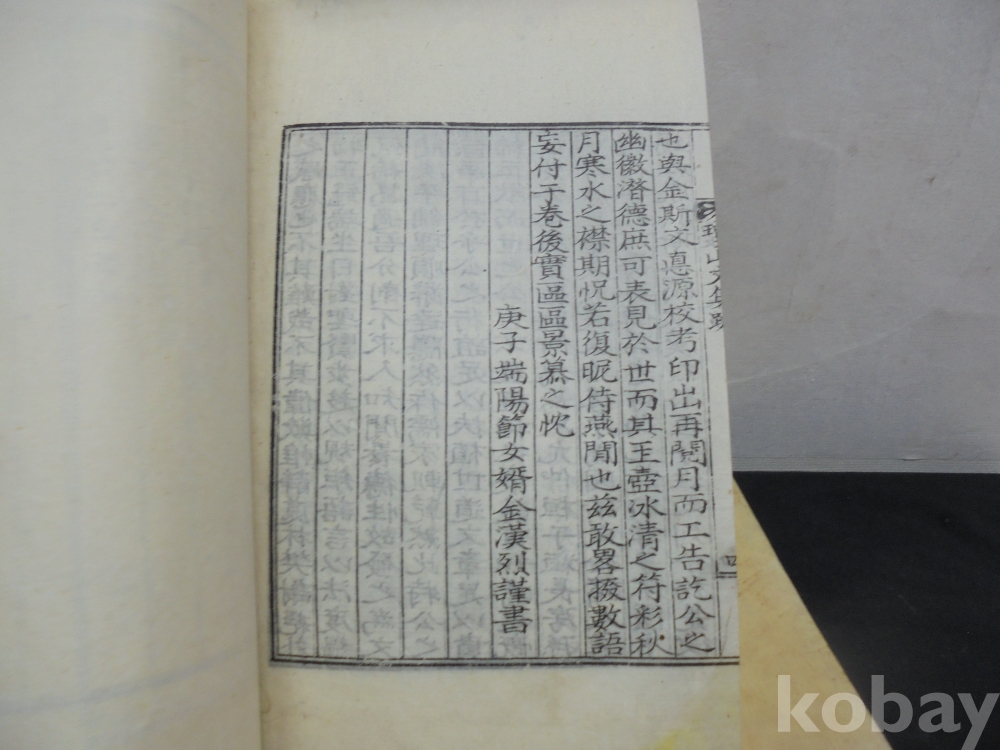 也與金斯文惪源校考印出再閱月而工告訖公之
幽徽潛德庶可表見於世而其玉壺冰清之符彩秋
月寒水之襟期怳若復昵侍燕閒也玆敢畧掇數語
妄付于卷後實區區景慕之忱
庚子端陽節女婿金漢烈謹書
kobay